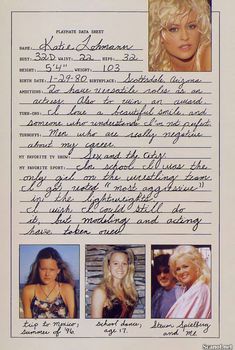 PLAYMATE DATA SHEET
NAME: Katie Lohmann
BUST: 32D WAIST: 22 HIPS: 32
HEIGHT: 5'4" WEIGHT: 103
BIRTH DATE: 1-29-80 BIRTHPLACE: Scottsdale, Arizona
AMBITIONS: To have versatile roles as an
actress. Also to win an award.
TURN-ONS: I love a beautiful smile, and
someone who understands I'm not perfect.
TURNOFFS: Men who are really negative
about my career.
MY FAVORITE TV SHOW: Sex and the City
MY FAVORITE SPORT: In school I was the
only girl on the wrestling team.
I got voted "most aggressive"
in the lightweights.
I wish I could still do
it, but modeling and acting
have taken over.
trip to Mexico,
summer of '96.
school dance,
age 17.
Steven Spielberg
and ME
Scanned.net